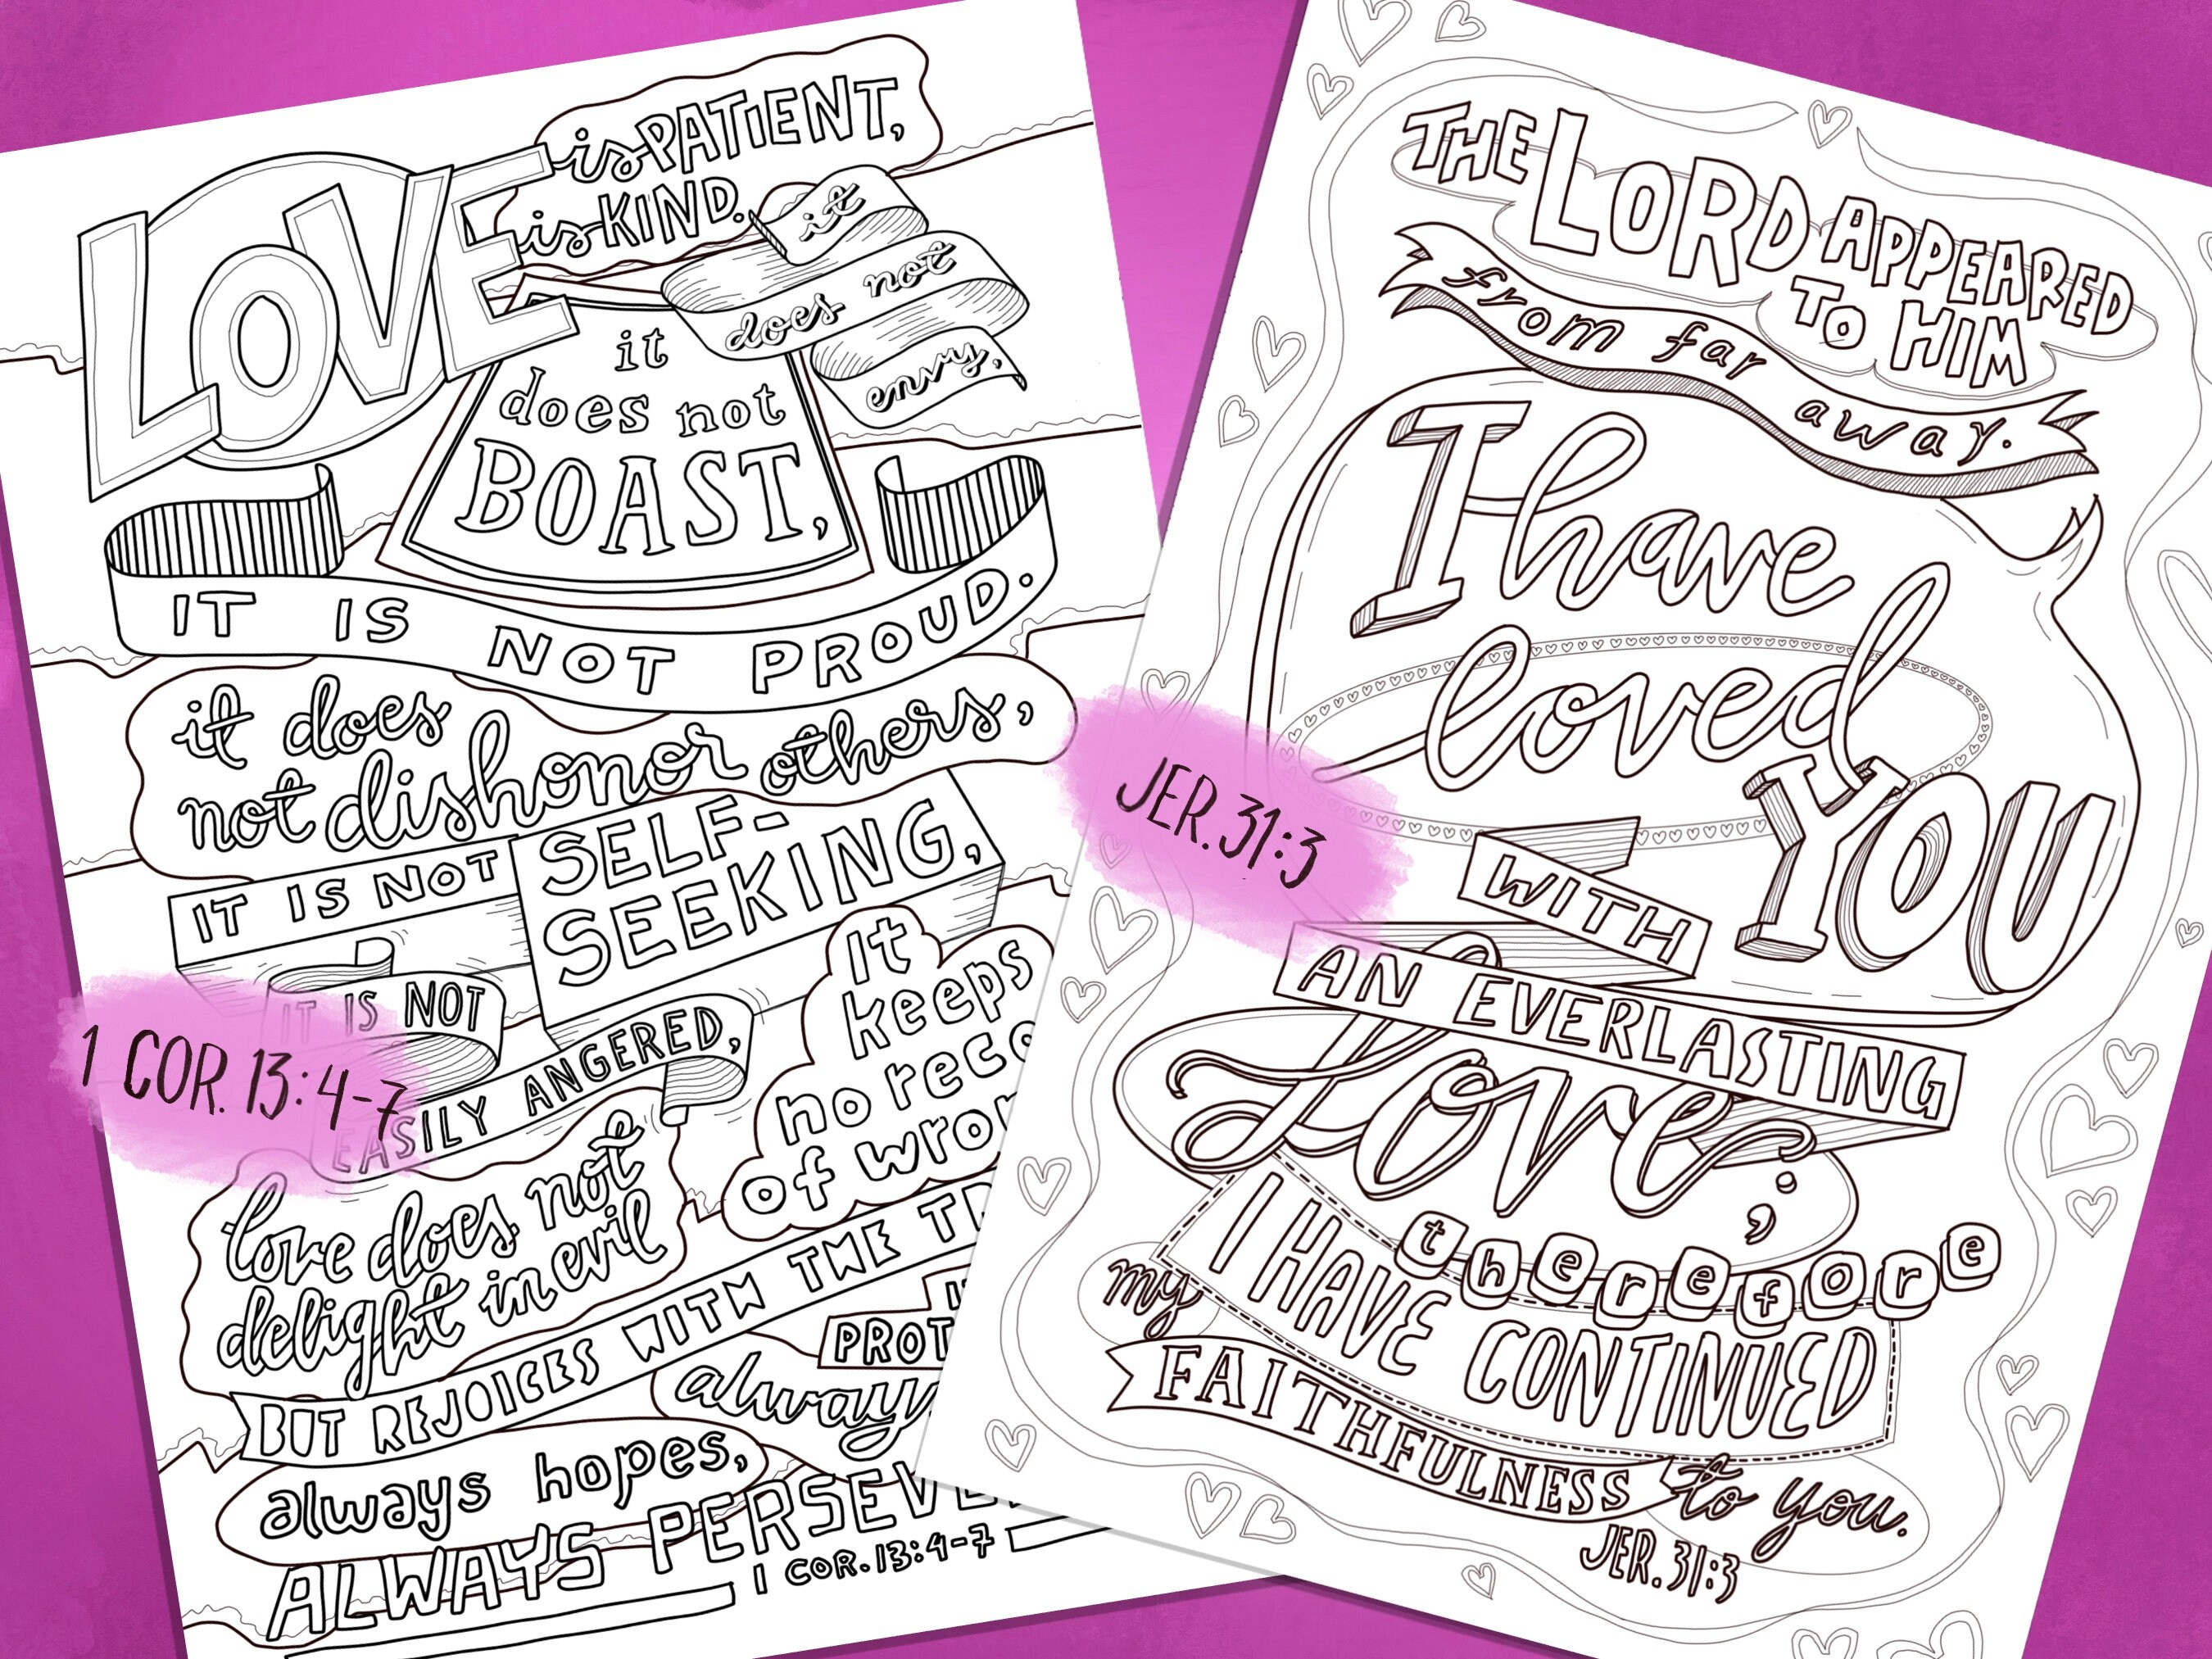 LOVE is PATIENT,
is KIND. it
does not
envy,
it
does not
BOAST,
IT IS NOT PROUD.
it does
not dishonor others,
IT IS NOT SELF-
SEEKING,
IT IS NOT
EASILY ANGERED,
It
keeps
no
of
love does not
delight in evil
BUT REJOICES WITH THE
always hopes,
ALWAYS
1 COR. 13:4-7
1 COR. 13:4-7
THE LORD APPEARED
TO HIM
from far away.
I have
loved
YOU
WITH
AN EVERLASTING
Love;
therefore
I HAVE CONTINUED
my
FAITHFULNESS
to you.
JER. 31:3
JER. 31:3